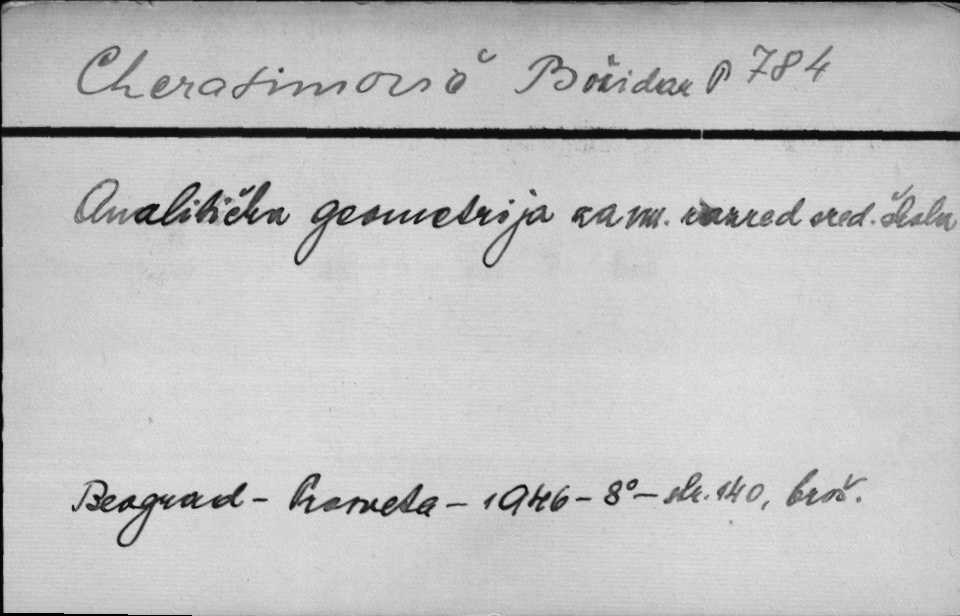 Cherasimovič Božidar P 784
Analitička geometrija za VIII. razred sred. škola
Beograd – Prosveta – 1946 – 8° – str. 140, broš.